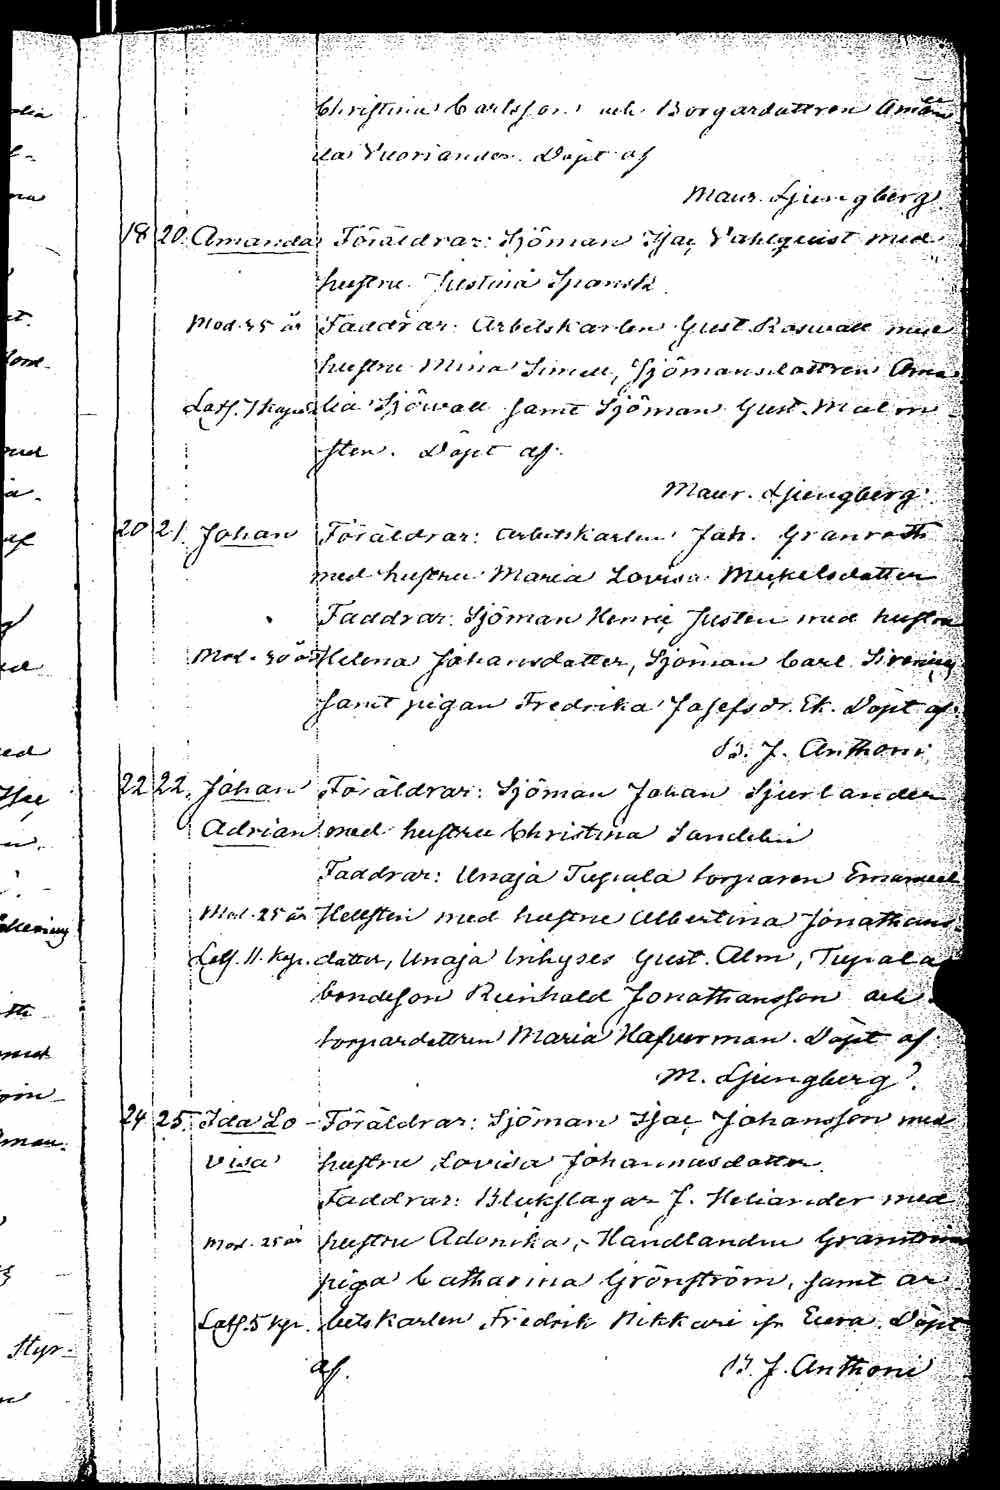 Christina Carlsson och Borgardottren Aman
da Vuoriander. Döpt af
Maur. Ljungberg.
18 20. Amanda Föräldrar: Sjöman Isac Vahlquist med
hustru Justina Spansk.
Mod. 35 år Faddrar: Arbetskarlen Gust. Roswall med
hustru Mina Simell, Sjömansdottren Ama
lia Sjöwall samt Sjöman Gust. Malm-
sten. Döpt af
Maur. Ljungberg.
20 21. Johan Föräldrar: Arbetskarlen Joh. Granroth
med hustru Maria Lovisa Mickelsdotter
Faddrar: Sjöman Henric Justen med hustru
Mod. 30 år Helena Johansdotter, Sjöman Carl
samt pigan Fredrika Josefsdr. Ek. Döpt af
B. J. Anthoni
22 22. Johan Föräldrar: Sjöman Johan Sjerlander
Adrian med hustru Christina Sandelin
Faddrar: Unaja Tupala torparen Emanuel
Mod. 25 år Hellsten med hustru Albertina Jonathans-
dotter, Unaja Inhyses Gust. Alm, Tupala
bondeson Reinhold Jonathansson och
torpardottren Maria Hafverman. Döpt af
M. Ljungberg.
24 25. Ida Lo- Föräldrar: Sjöman Isac Johansson med
visa hustru Lovisa Johannesdotter.
Faddrar: Bleckslagar J. Heliander med
Mod. 25 år hustru Adonika, Handlanden
piga Catharina Grönström, samt ar
betskarlen Fredrik Nikkari ifr. Eura. Döpt
af. B. J. Anthoni